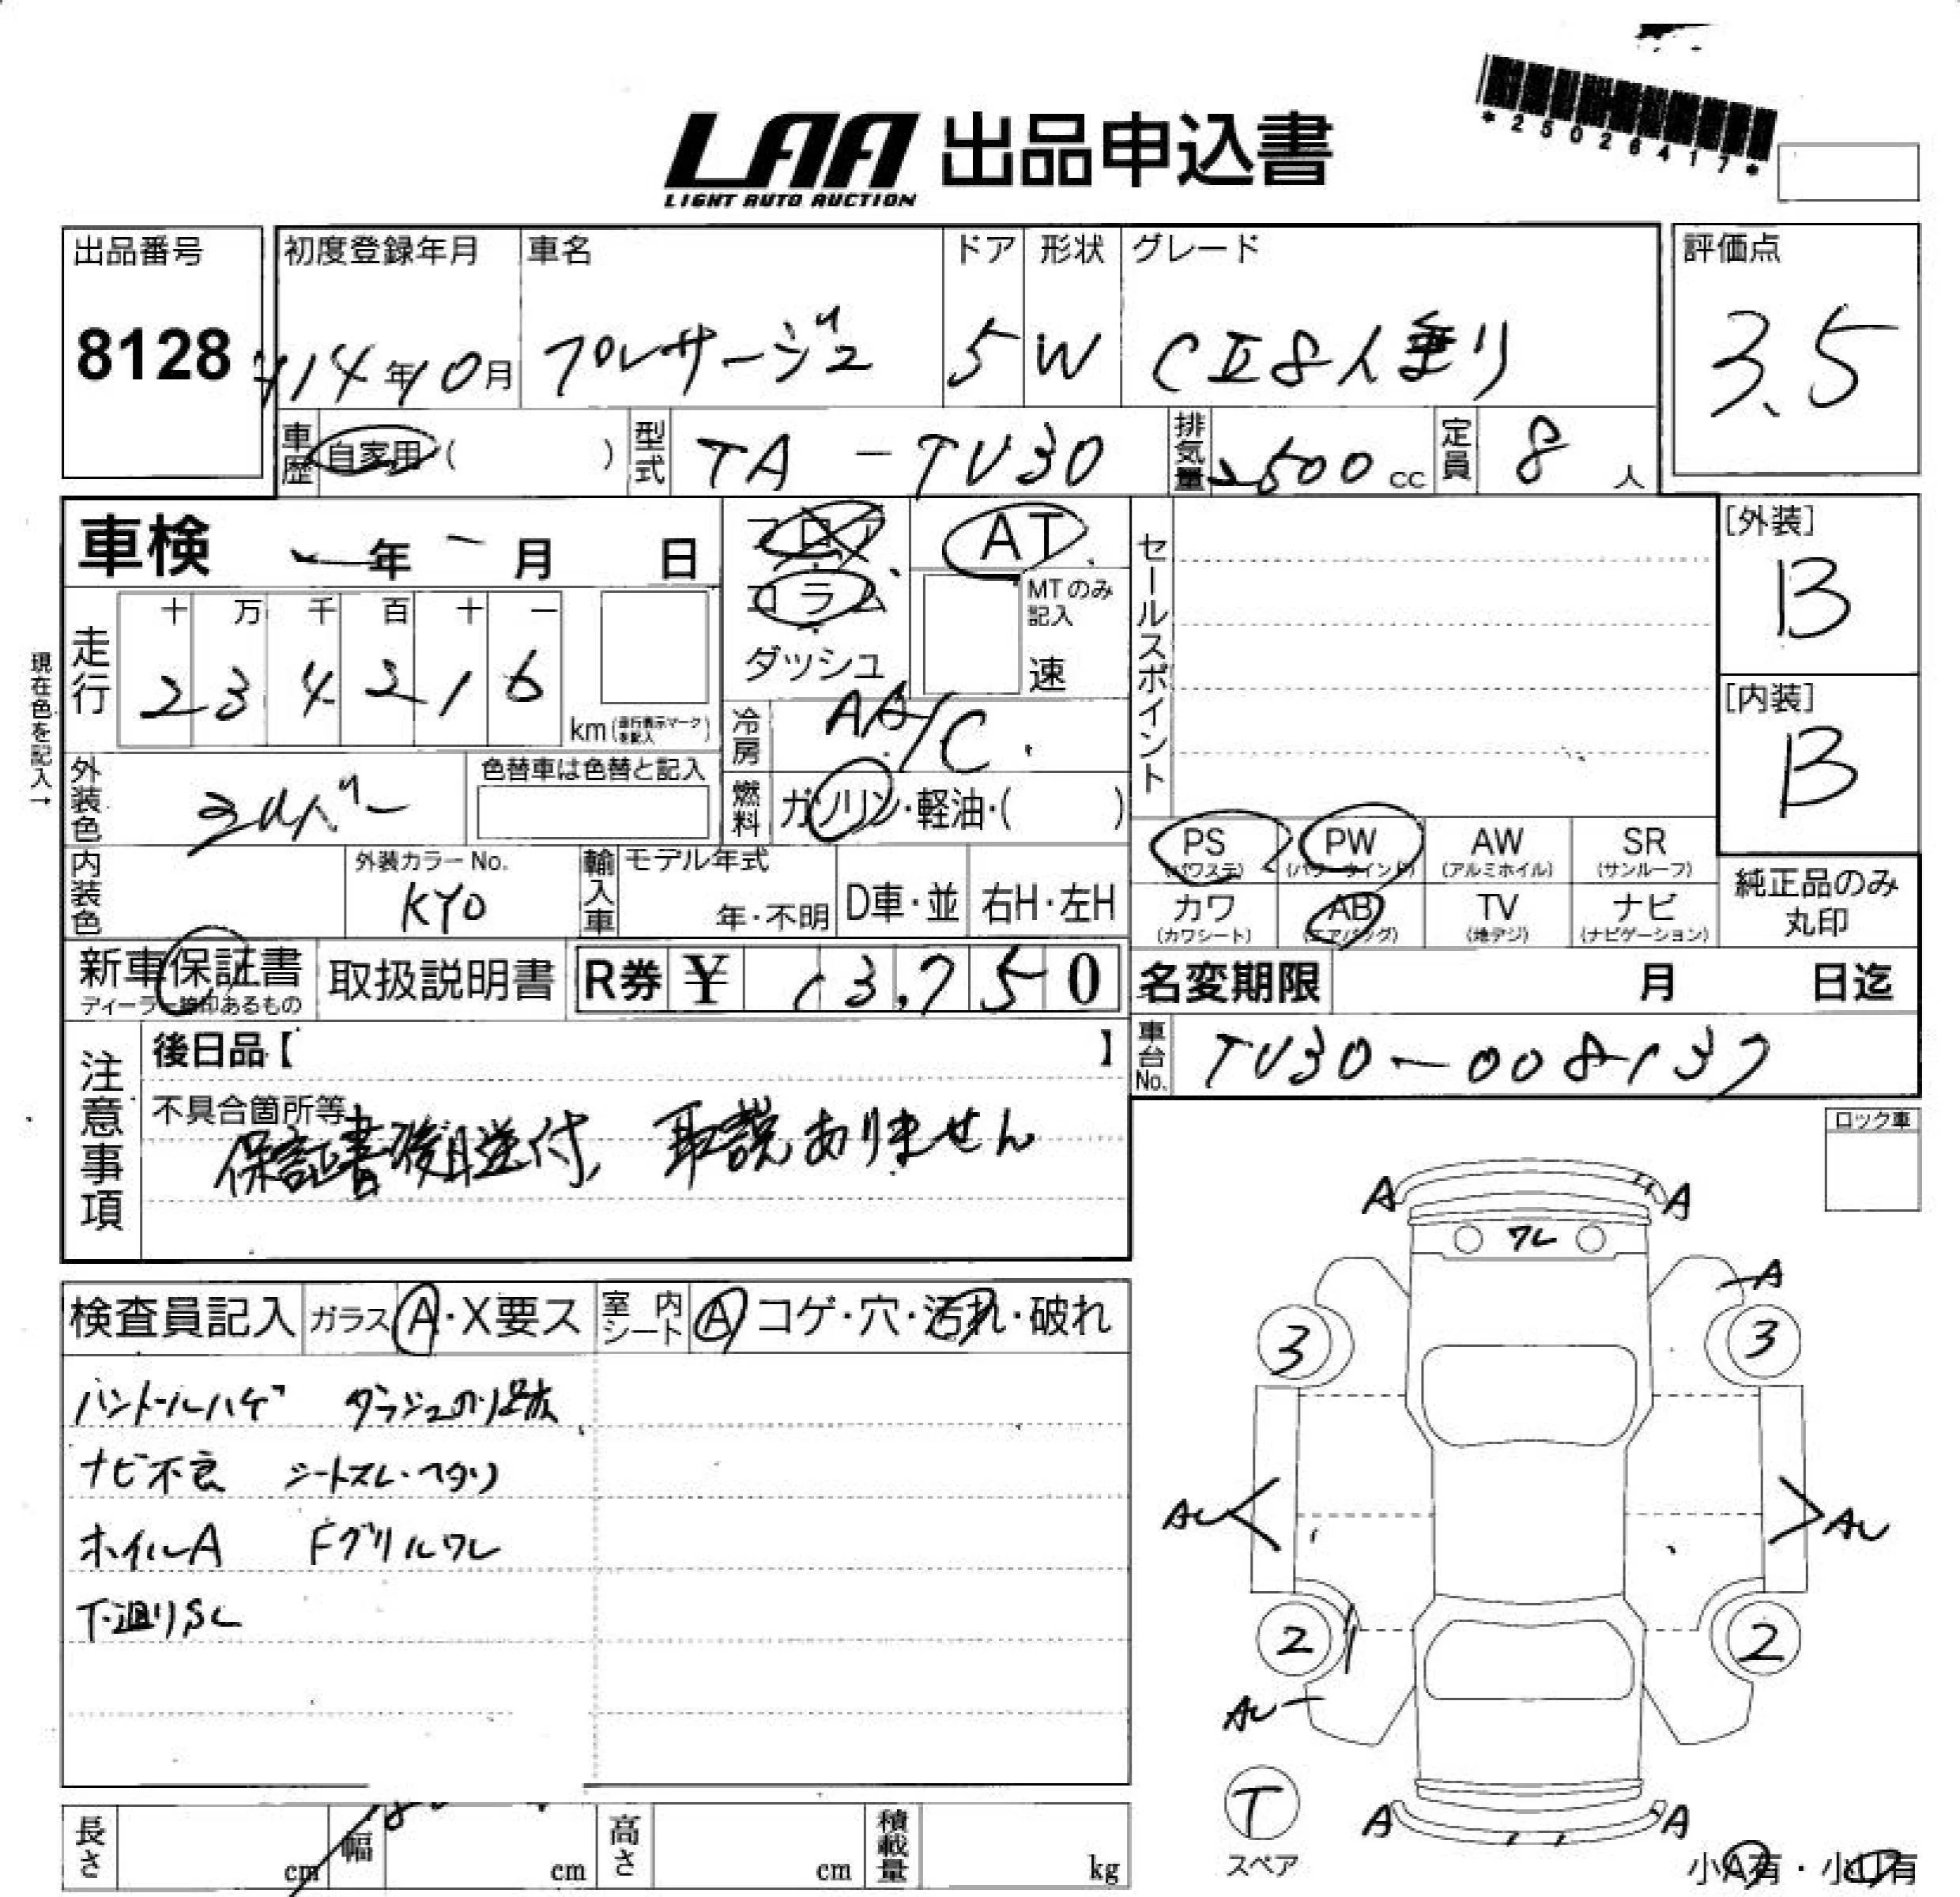 *25026417*
LAA 出品申込書
LIGHT AUTO AUCTION
出品番号 初度登録年月 車名 ドア 形状 グレード 評価点
8128 H14年10月 プレサージュ 5 W CⅡ8人乗り 3.5
車歴 自家用( ) 型式 TA-TU30 排気量 2500cc 定員 8人
車検 年 月 日
フロア AT
コラム MTのみ記入
ダッシュ 速
セールスポイント
[外装]
B
[内装]
B
現在色を記入→
走行 十 万 千 百 十 一
2 3 4 2 1 6 km(走行表示マークを記入)
冷房 AA/C
外装色 シルバー 色替車は色替と記入
燃料 ガソリン・軽油・( )
内装色 外装カラーNo. KYO 輸入車 モデル年式 年・不明 D車・並 右H・左H
PS PW AW SR
(パワステ) (パワーウインド) (アルミホイル) (サンルーフ)
カワ AB TV ナビ
(カワシート) (エアバッグ) (地デジ) (ナビゲーション)
純正品のみ
丸印
新車保証書 取扱説明書 R券 ¥ 13,750 名変期限 月 日迄
ディーラー捺印あるもの
車台No. TU30-008137
注意事項 後日品【 】
不具合箇所等
保証書後日送付、取説ありません
ロック車
検査員記入 ガラス A・X要ス 室内シート A コゲ・穴・汚れ・破れ
ハンドルハゲ ダッシュのり跡
ナビ不良 シートスレ・ヘタリ
ホイルA Fグリルワレ
下廻りSC
A A
ワレ
A
3 3
AU AU
2 2
AU
T
スペア
A A
小A有・小U有
長さ cm 幅 cm 高さ cm 積載量 kg